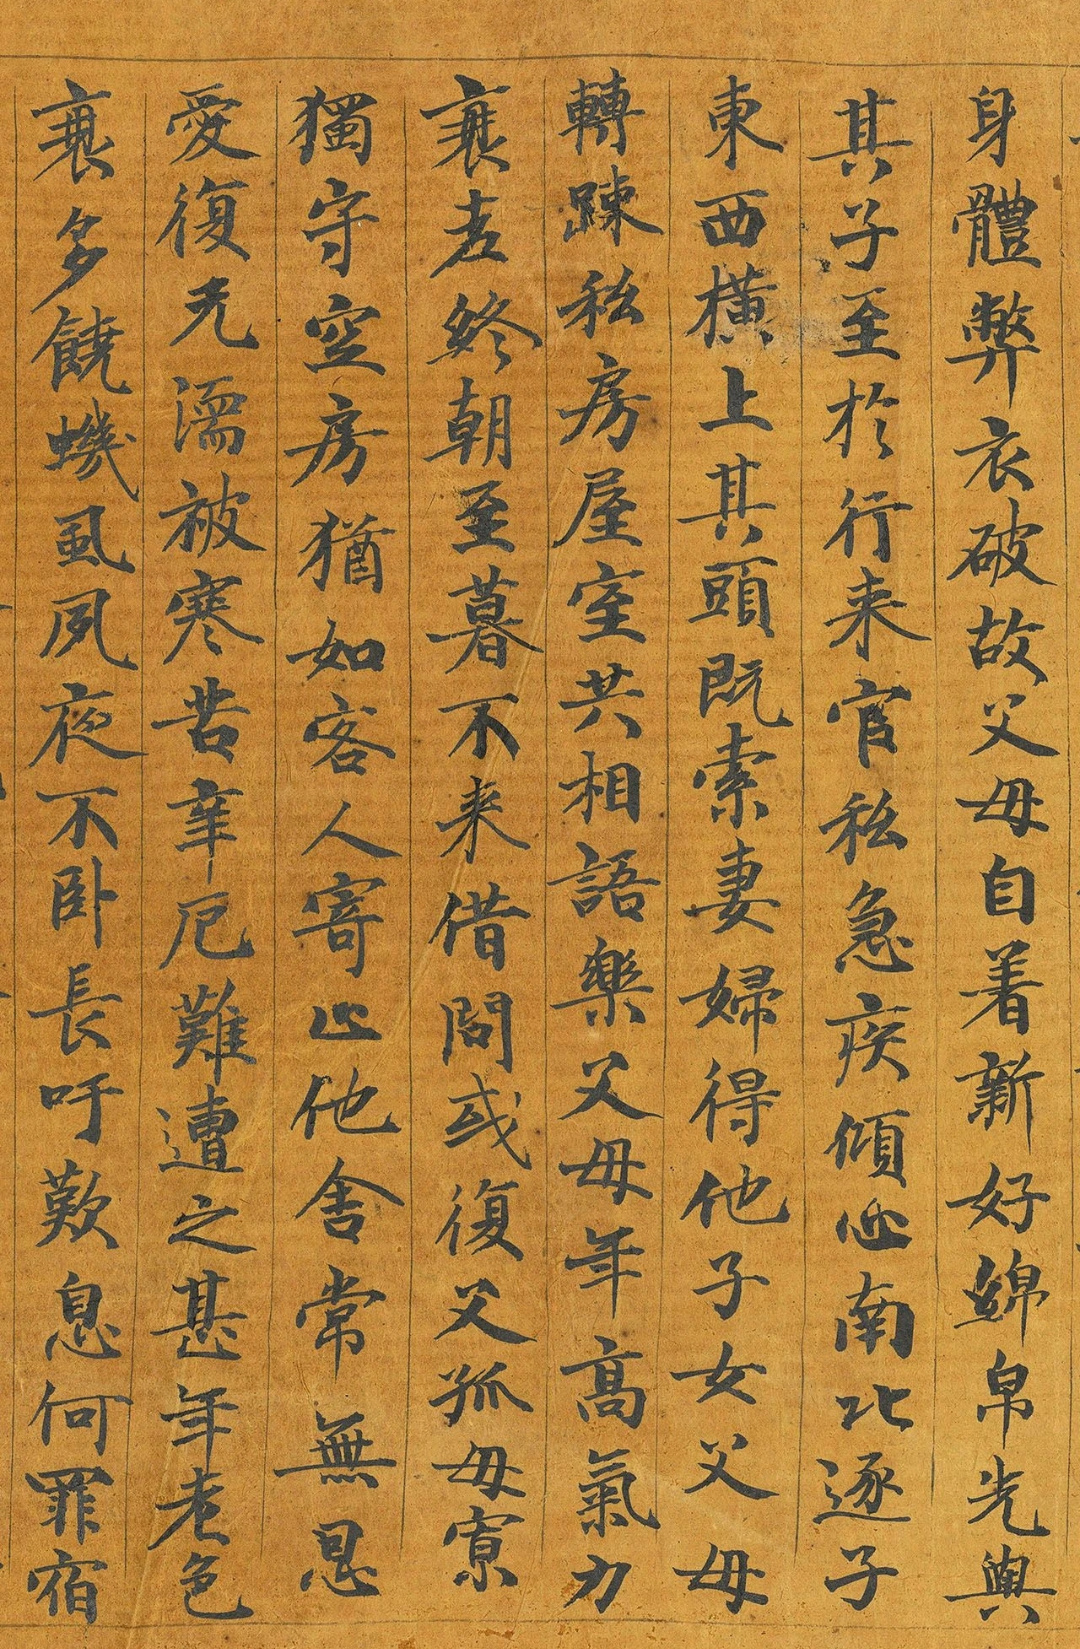 身體弊衣破故父母自着新好綿帛先與
其子至於行来官私急疾傾心南北逐子
東西橫上其頭既索妻婦得他子女父母
轉踈私房屋室共相語樂父母年高氣力
衰老終朝至暮不来借問或復父孤母寡
獨守空房猶如客人寄止他舍常無恩
愛復无濡被寒苦辛厄難遭之甚年老色
衰多饒蟣虱夙夜不卧長吁歎息何罪宿